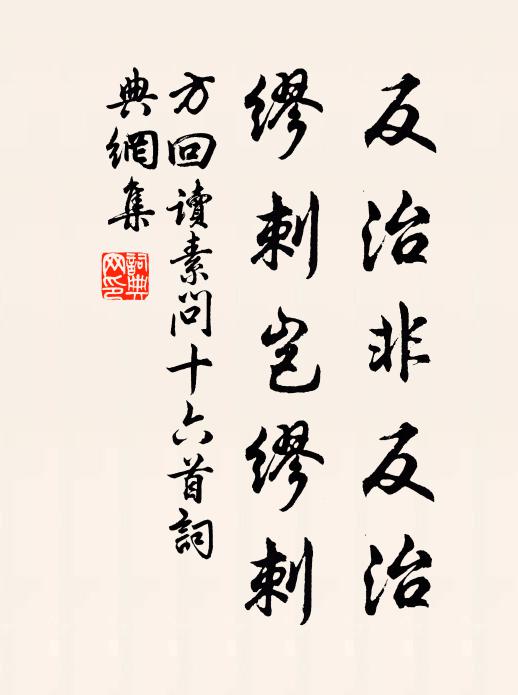 反治非反治
繆刺岂繆刺
方回讀素問十六首詞
典網集
詞典網印